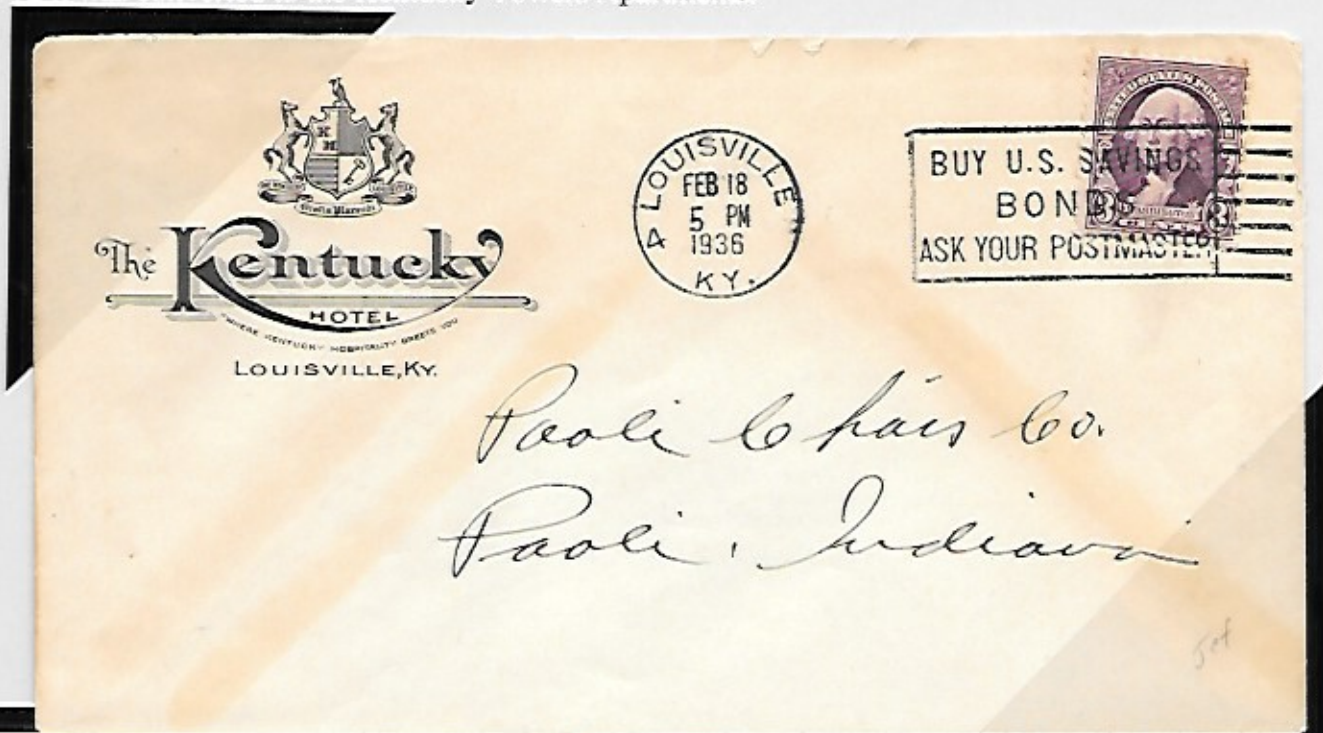 K
H
The Kentucky
HOTEL
"WHERE KENTUCKY HOSPITALITY GREETS YOU"
LOUISVILLE, KY.
LOUISVILLE
FEB 18
5 PM
1936
KY.
4
BUY U.S. SAVINGS
BONDS
ASK YOUR POSTMASTER
3 3
Paoli Chair Co.
Paoli, Indiana